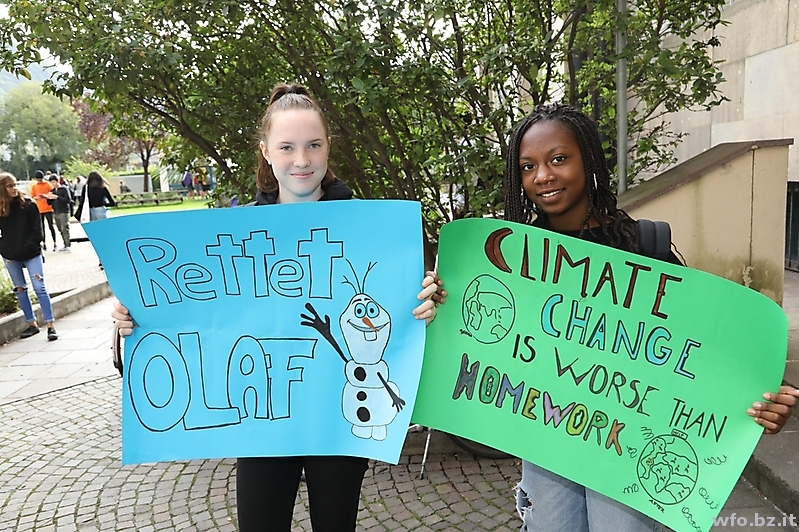 Rettet
OLAF
CLIMATE
CHANGE
IS WORSE THAN
HOMEWORK
wfo.bz.it